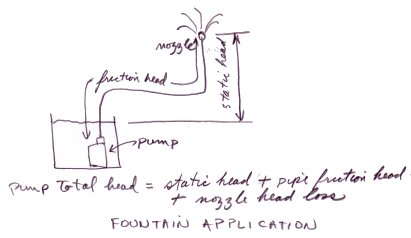 nozzle
friction head
static head
pump
pump Total head = static head + pipe friction head
+ nozzle head loss
FOUNTAIN APPLICATION